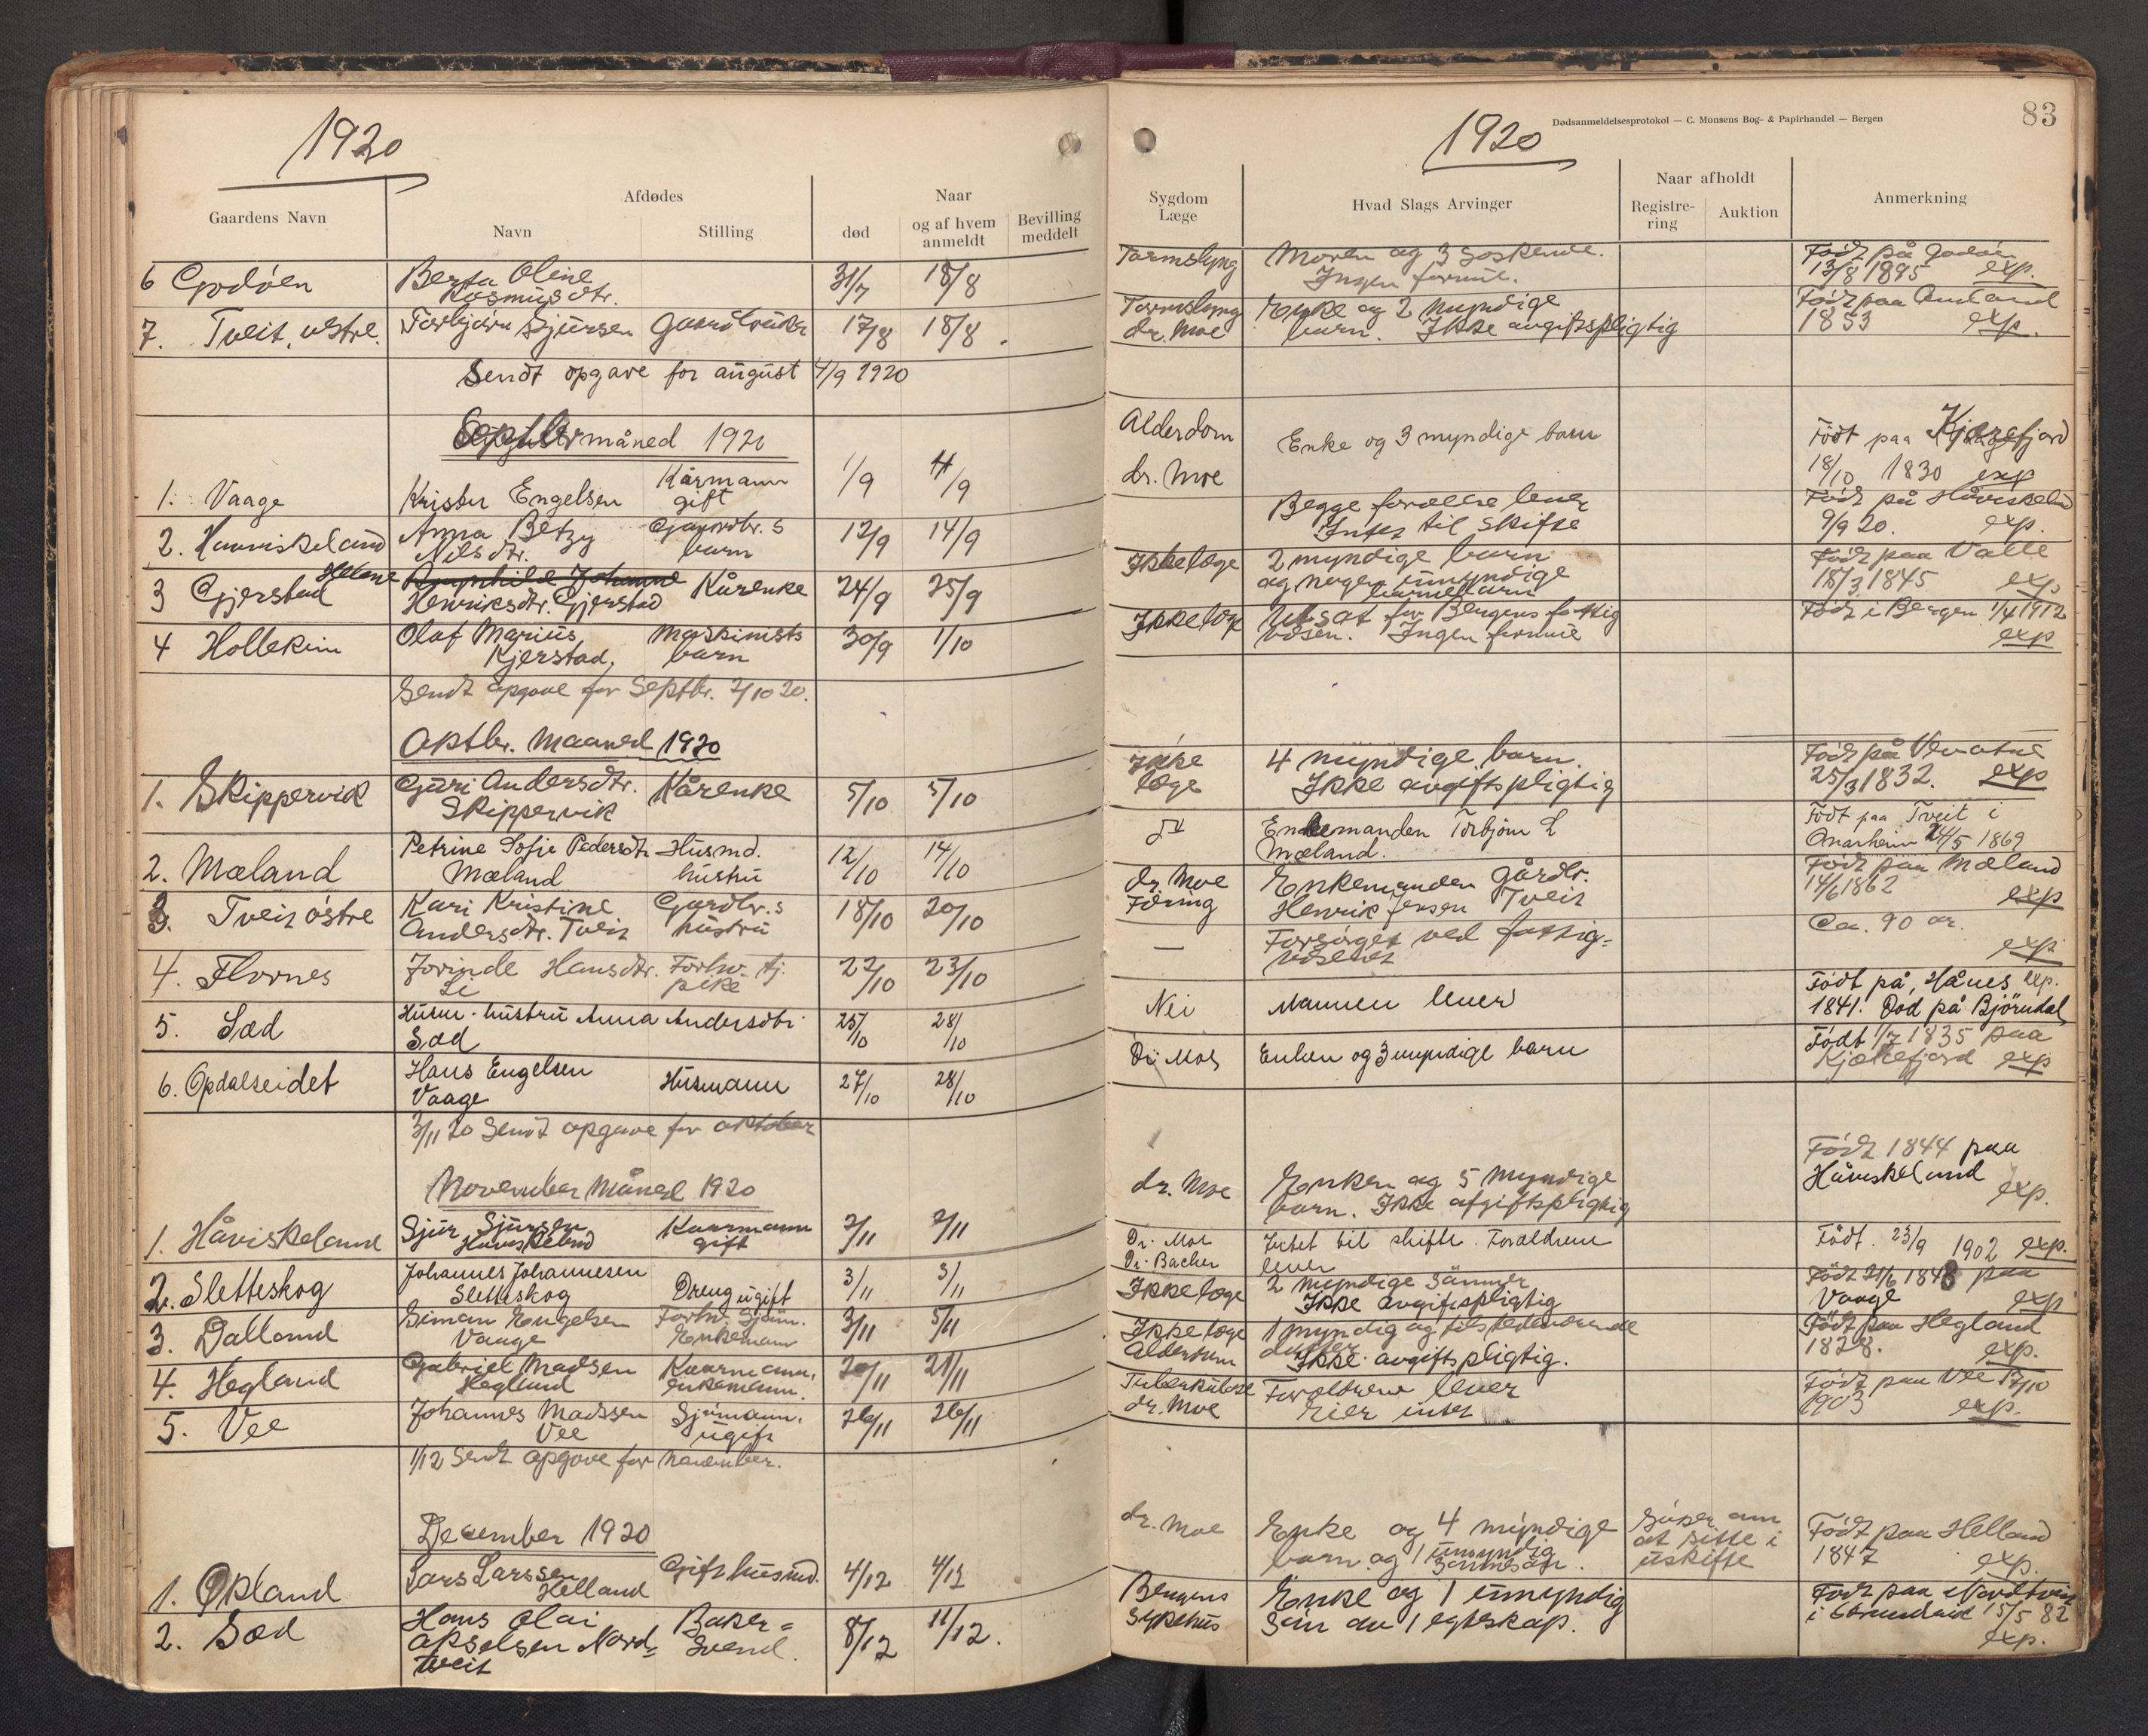 1920
Gaardens Navn
Afdødes
Navn
Stilling
Naar
død
og af hvem
anmeldt
Bevilling
meddelt
6 Godöen
Berta Oline
Rasmusdtr.
31/7
18/8
7. Tveit, østre.
Torbjørn Sjursen
17/8
18/8
Sendt opgave for august 4/9 1920
måned 1920
1. Vaage
Krister Engelsen
Kårmann
gift
1/9
4/9
2. Haaviskeland
Anna Betzy
Nilsdtr.
Gaardbr.s
barn
12/9
14/9
3 Gjerstad
Helene
Johanne
Henriksdtr. Gjerstad
Kårenke
24/9
25/9
4 Hollekim
Olaf Marius
Kjerstad,
Maskinists
barn
30/9
1/10
Sendt opgave for Septbr. 2/10 20.
Oktbr. Maaned 1920
1. Skippervik
Guri Andersdtr.
Skippervik
Kårenke
5/10
5/10
2. Mæland
Petrine Sofie Pedersdtr
Mæland
Husmd.
hustru
12/10
14/10
3. Tveit östre
Kari Kristine
Andersdtr. Tveit
Gardbr.s
hustru
18/10
20/10
4. Flornes
Jorinde Hansdtr.
Li
Forhv. tj.
pike
22/10
23/10
5. Sæd
Husm. hustru Anna Andersdtr
Sæd
25/10
28/10
6. Opdalseidet
Hans Engelsen
Vaage
Husmann
27/10
28/10
3/11 20 Sendt opgave for oktober
November Måned 1920
1. Håviskeland
Sjur Sjursen
Håviskeland
Kaarmann
gift
2/11
2/11
2. Sletteskog
Johannes Johannesen
Sletteskog
Dreng ugift
3/11
3/11
3. Dalland
Simon Engelsen
Vaage
Forhv. Sjøm.
Enkemann
3/11
5/11
4. Hegland
Gabriel Madsen
Hegland
Kaarmann,
enkemann.
20/11
21/11
5. Vee
Johannes Madssen
Vee
Sjømann,
ugift
26/11
26/11
1/12 Sendt opgave for november.
December 1920
1. Økland
Lars Larssen
Helland
Gift husmd.
4/12
4/12
2. Sæd
Hans Olai
Akselsen Nord=
tveit
Baker=
Svend.
8/12
11/12.
Dødsanmeldelsesprotokol — C. Monsens Bog- & Papirhandel — Bergen
83
1920
Sygdom
Læge
Hvad Slags Arvinger
Naar afholdt
Registre-
ring
Auktion
Anmerkning
Tarmslyng
Moren og 3 Søskende.
Ingen formue.
Född på Godöen
13/8 1895 exp.
Tarmslyng
dr. Moe
Enke og 2 myndige
barn. Ikke avgiftspligtig
Född paa
1853 exp.
Alderdom
dr. Moe
Enke og 3 myndige barn
Födt paa
18/10 1830 exp
Begge forældre lever
Intet til Skifte
Född på Håviskeland
9/9 20. exp.
Ikke læge
2 myndige barn
og nogen umyndige
barnebarn
Född paa Valle
18/3 1845 exp
Ikke læge
Utsat for Bergens fattig
væsen. Ingen formue
Född i Bergen 1/4 1912
exp
Ikke
læge
4 myndige barn.
Ikke avgiftspligtig
Född på
25/3 1832. exp
Enkemanden Torbjørn L
Mæland.
Födt paa Tveit i
24/5 1869
dr. Moe
Föring
Enkemanden gårdbr.
Henrik Jensen Tveit
Född paa Mæland
14/6 1862
exp
—
Forsörget ved fattig=
væsenet
Ca. 90 år.
exp
Nei
Mannen lever
Födt på, Hånes exp.
1841. Död på Björndal
Dr. Moe
Enken og 3 myndige barn
Födt 1/7 1835 paa
exp
dr. Moe
Enken og 5 myndige
barn. Ikke afgiftspligtig
Född 1844 paa
Håviskeland
exp.
Dr. Moe
Dr. Bacher
Intet til skifte. Forældrene
lever
Födt. 23/9 1902 exp.
Ikke læge
2 myndige Sønner
Ikke avgiftspligtig
Född 21/6 1848 paa
Vaage exp
Ikke læge
Alderdom
1 myndig og tilstedeværende
datter
Ikke avgiftspligtig.
Född paa Hegland
1828. exp.
Tuberkulose
dr. Moe
Forældrene lever
Eier intet
Född paa Vee 17/10
1903 exp.
dr. Moe
Enke og 4 myndige
barn og 1 umyndig
Söker om
at sitte i
uskifte
Född paa Helland
1847 exp.
Bergens
Sykehus
Enke og 1 umyndig
Sön av 1 egteskap.
Född paa Nordtveit
i Strandvik 15/5 82
exp.